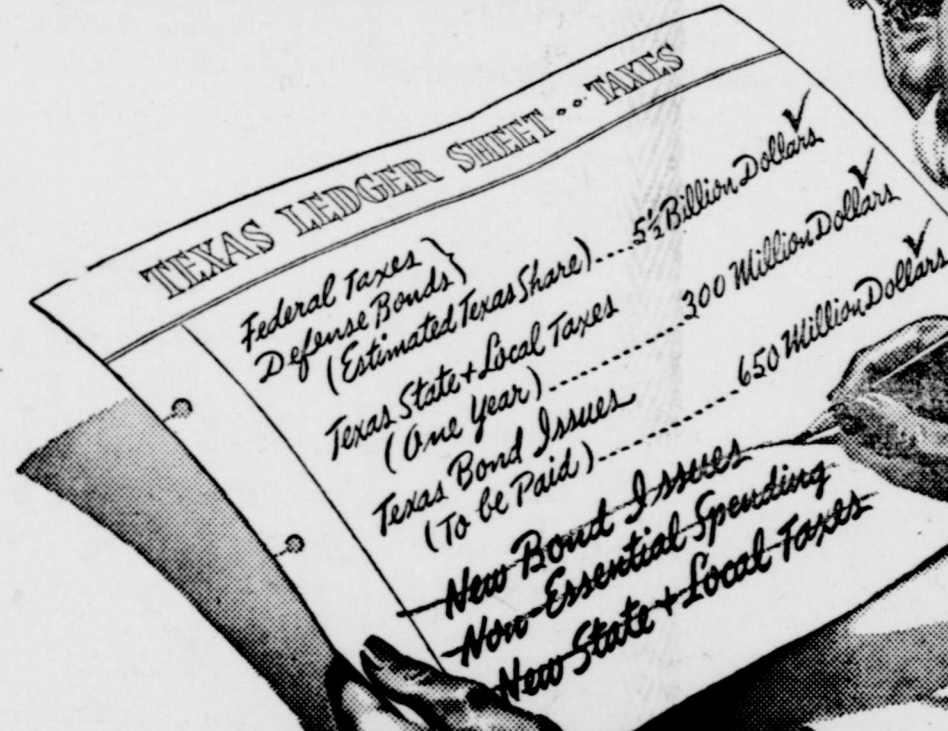 TEXAS LEDGER SHEET.. TAXES
Federal Taxes }
Defense Bonds }
(Estimated Texas Share)....5½ Billion Dollars ✓
Texas State + Local Taxes
(One Year)..........300 Million Dollars ✓
Texas Bond Issues
(To be Paid)..........650 Million Dollars ✓
New Bond Issues
Non-Essential Spending
New State + Local Taxes